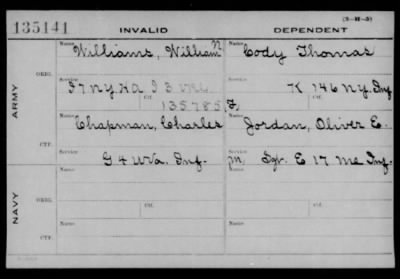 (3-M-3)
135141 INVALID DEPENDENT
Name Name
Williams, William N Cody Thomas
ORIG. Service Service
Ctf. K 146 N.Y. Inf
135.785
ARMY
Name Name
Chapman, Charles Jordan, Oliver E.
CTF. Service Service
G 4 W.Va. Inf. Sgt. E 17 Me Inf.
Name Name
ORIG. Ctf. Ctf.
NAVY
Name Name
CTF.